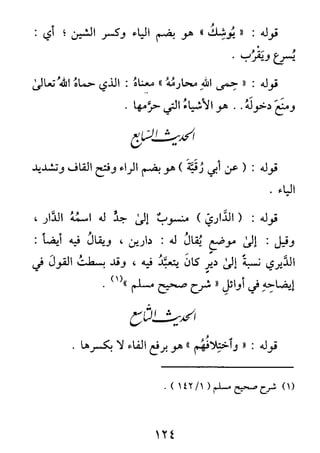 قوله : « يُوشِكُ » هو بضم الياء وكسر الشين ؛ أي :
يُسرِع ويَقْرُب .
قوله : « حِمى اللهِ محارمُهُ » معناهُ : الذي حماهُ اللهُ تعالىٰ
ومنَعَ دخولَهُ . . هو الأشياءُ التي حرَّمها .
الحديث السابع
قوله : ( عن أبي رُقَيَّةَ ) هو بضم الراء وفتح القاف وتشديد
الياء .
قوله : ( الدَّاريّ ) منسوبٌ إلىٰ جدٍّ له اسمُهُ الدَّار ،
وقيل : إلىٰ موضعٍ يُقالُ له : دارين ، ويقالُ فيه أيضاً :
الدَّيري نسبةً إلىٰ ديرٍ كانَ يتعبَّدُ فيه ، وقد بسطتُ القولَ في
إيضاحِهِ في أوائلِ « شرح صحيح مسلم »(١) .
الحديث التاسع
قوله : « وٱختِلافُهُم » هو برفع الفاء لا بكسرها .
(١) شرح صحيح مسلم ( ١٤٢/١ ) .
١٢٤